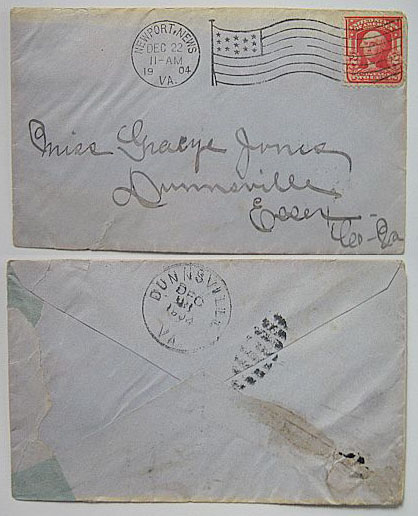 NEWPORT NEWS
DEC 22
11-AM
1904
VA.
Miss Gracye Jones
Dunnsville
Essex
Co-Va
DUNNSVILLE
DEC
1904
VA.